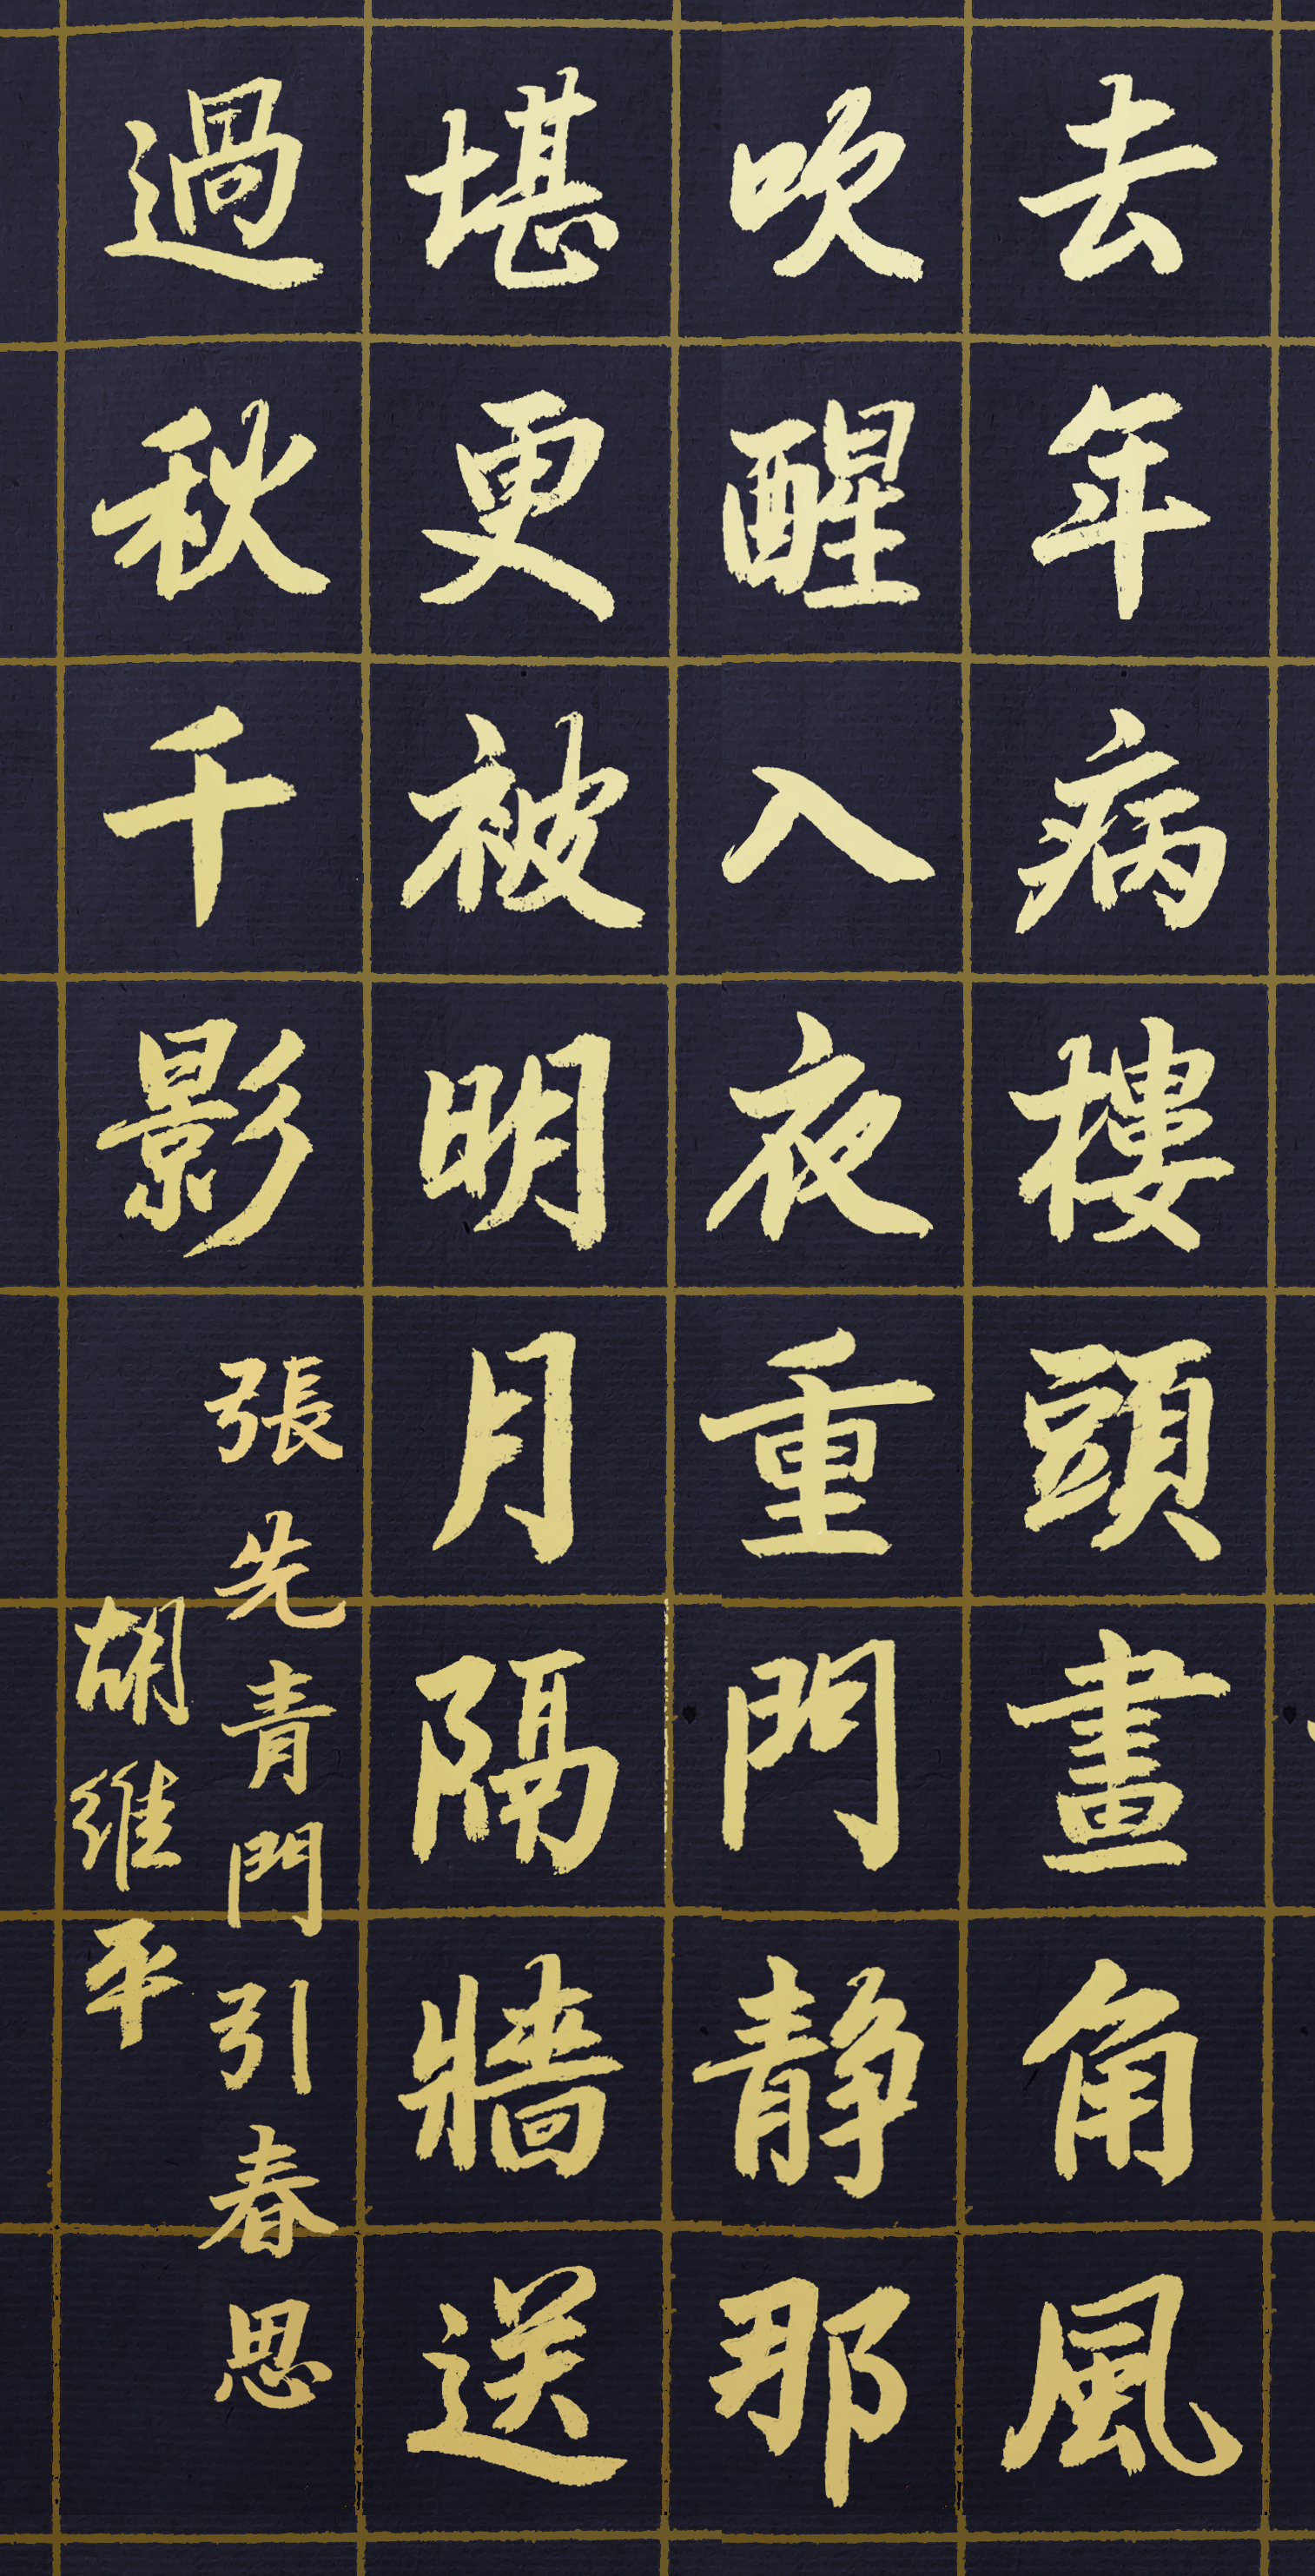 去年病樓頭畫角風
吹醒入夜重門靜那
堪更被明月隔牆送
過秋千影
張先青門引春思
胡維平